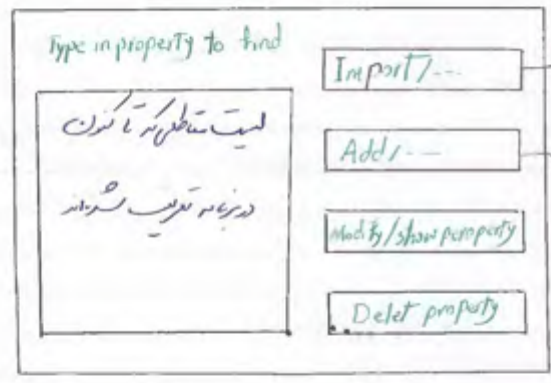 Type in property to find
لیست مقاطعی که تا کنون
در برنامه تعریف شده‌اند
Import/...
Add/...
Modify/show property
Delet property